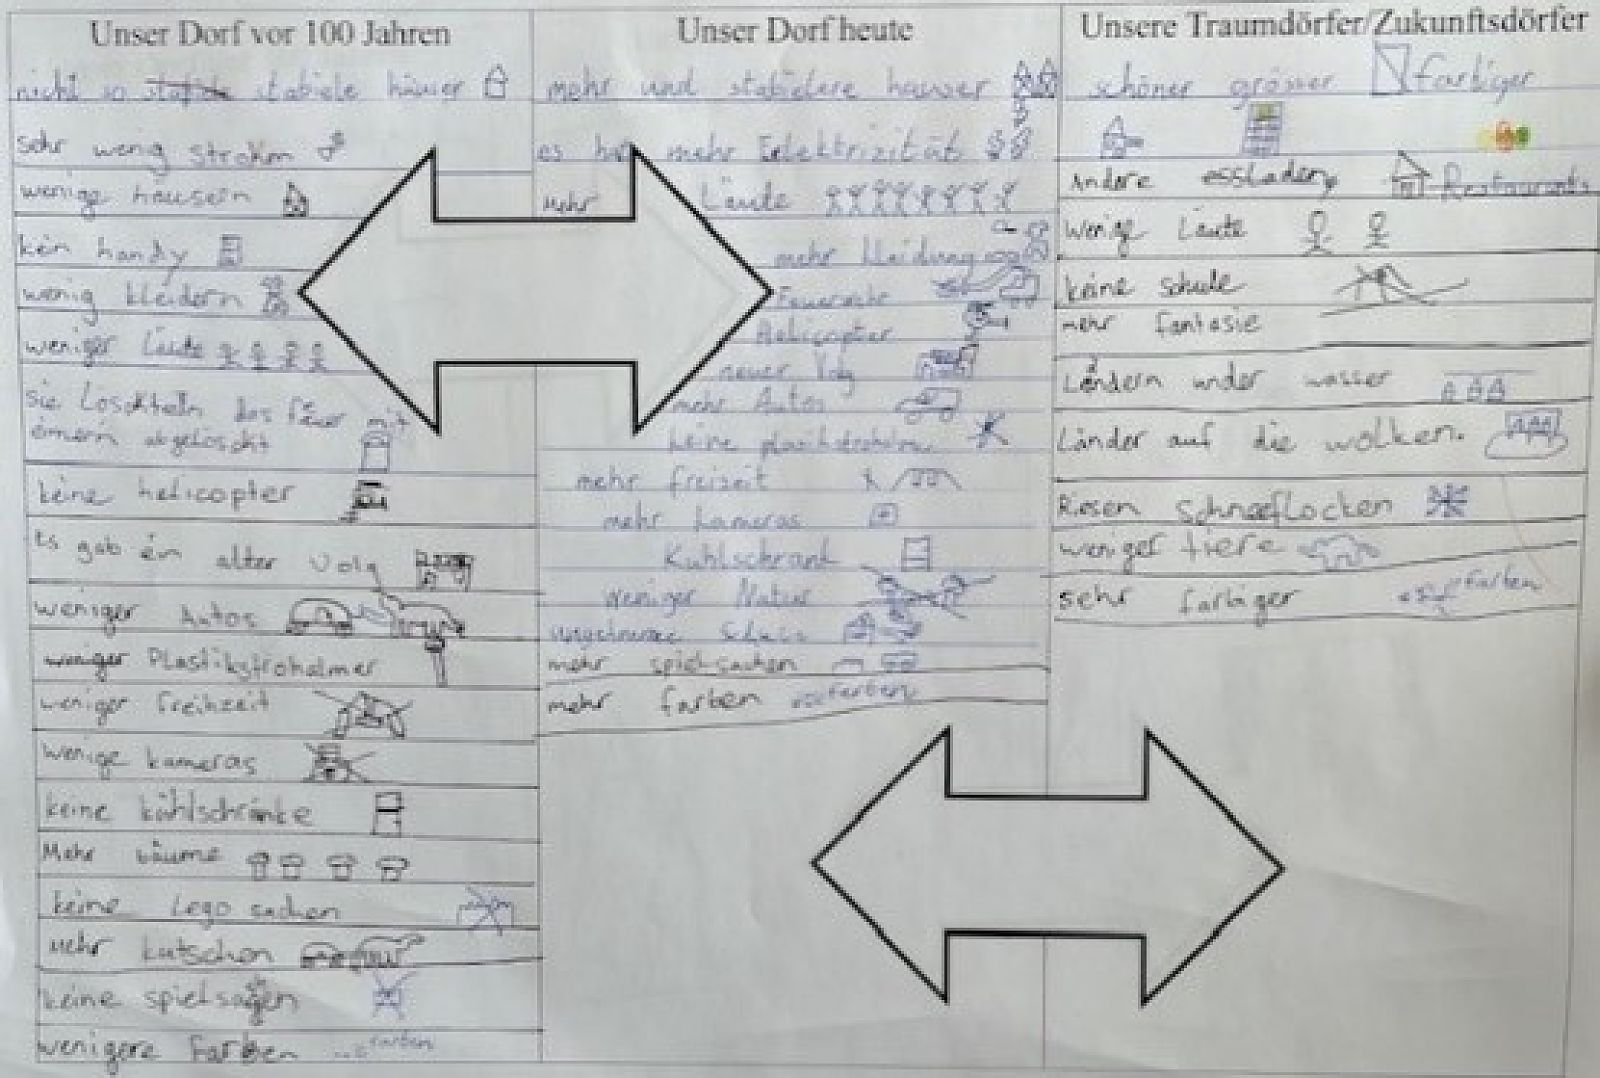 Unser Dorf vor 100 Jahren
nicht so stabiele häuser
sehr wenig strokm
wenige häusern
kein handy
wenig kleidern
weniger Läute
sie Löschtein das
abgelöscht
keine helicopter
Es gab ein alter Volg
weniger Autos
weniger Plastikstrohalmer
weniger freihzeit
wenige kameras
keine kühlschränke
Mehr bäume
keine Lego sachen
Mehr kutschen
keine spielsagen
wenigere Farben farben
Unser Dorf heute
mehr und stabielere hauser
es hat mehr Eelektrizität
Mehr Läute
mehr kleidung
Feuerwehr
Helicopter
neuer Volg
mehr Autos
keine
mehr freizeit
mehr kameras
Kuhlschrank
weniger Natur
mehr spielsachen
mehr farben farben
Unsere Traumdörfer/Zukunftsdörfer
schöner grösser farbiger
Andere Restaurants
wenige Läute
keine schule
mehr fantasie
Ländern under wasser
Länder auf die wolken.
Riesen schneeflocken
weniger tiere
sehr farbiger farben